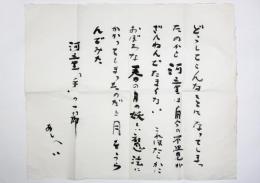 どうしてこんなことになってしまっ
たのかと河童は自分の不注意が
ざんねんでたまらない これはたしかに
おぼろな春の月の妖しい魔法に
かかってしまったのだと月をにら
んでみた
河童「手」の一節
あしへい